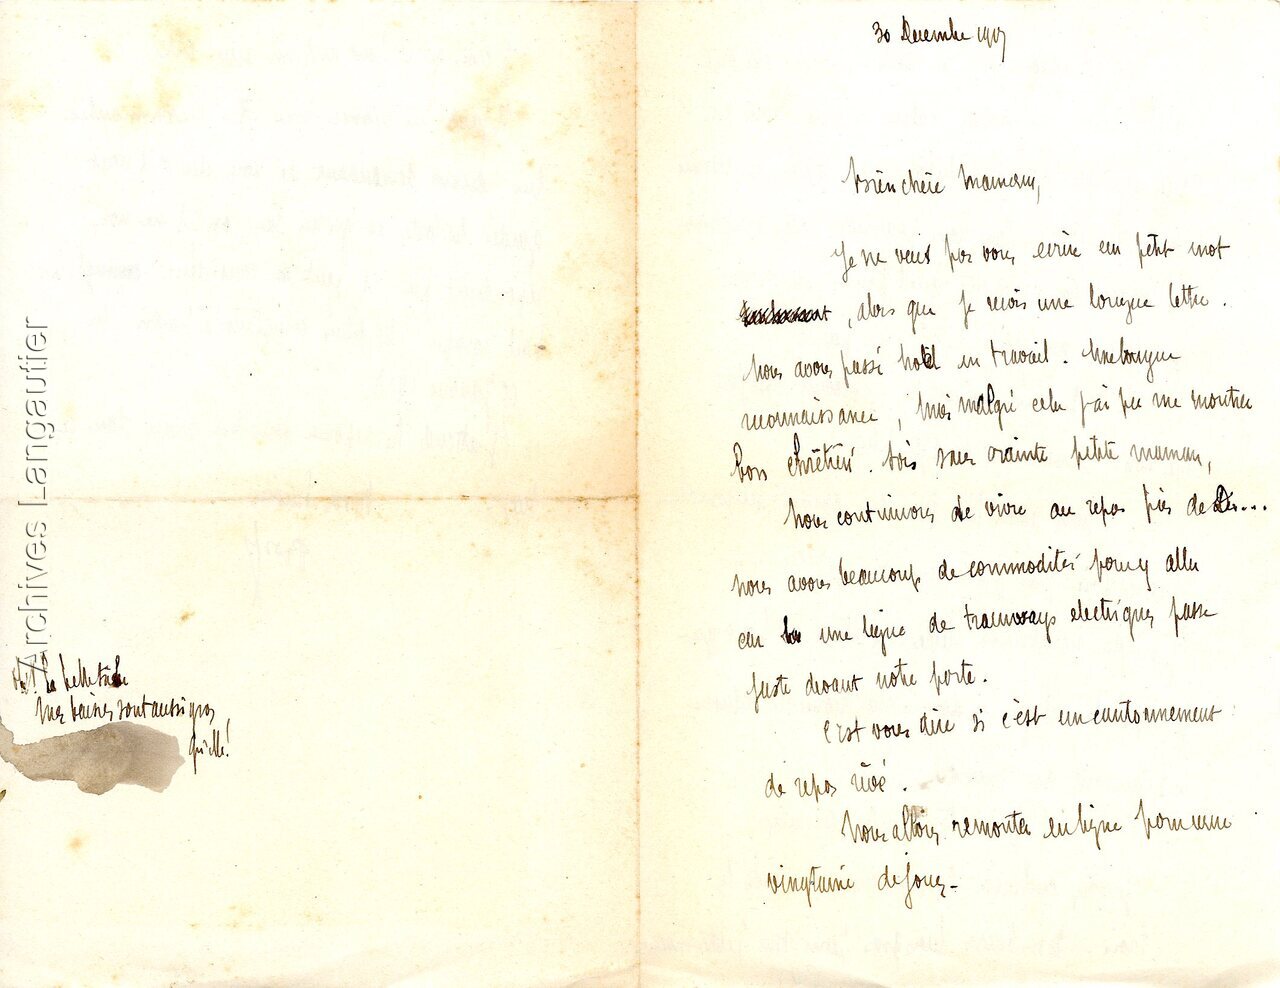 30 Decembre 1917
bien chère maman,
Je ne veux pas vous ecrire un petit mot
, alors que je reçois une longue lettre.
Nous avons passé noël en travail. Une longue
reconnaissance, mais malgré cela j'ai pu me montrer
bon chrétien. Sois sans crainte petite maman,
Nous continuons de vivre au repos près de
nous avons beaucoup de commodités pour y aller
car une ligne de tramways electriques passe
juste devant notre porte.
C'est vous dire si c'est un cantonnement
de repos rêvé.
Nous allons remonter en ligne pour une
vingtaine de jours -
la belle tache
Mes baisers sont aussi gros
qu'elle!
Archives Langautier